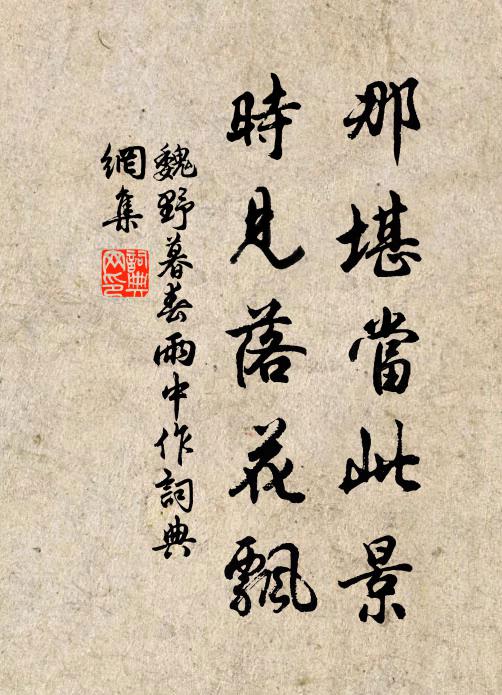 那堪當此景
時見落花飄
魏野暮春雨中作詞典
網集
詞典
网印